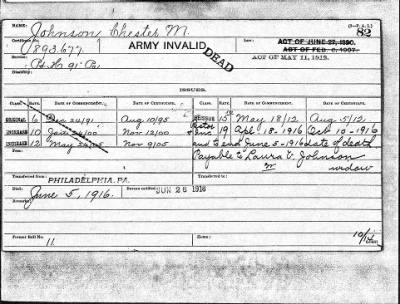 NAME: Johnson Chester M. (3-785.)
82
Certificate No. 893.677. ARMY INVALID ACT OF JUNE 27, 1890.
ACT OF FEB. 6, 1907.
DEAD
ACT OF MAY 11, 1912.
Disability:
ISSUES.
CLASS. RATE. DATE OF COMMENCEMENT. DATE OF CERTIFICATE. CLASS. RATE. DATE OF COMMENCEMENT. DATE OF CERTIFICATE.
ORIGINAL 6 Dec 24/91 Aug 10/95 15 May 18/12 Aug 5/12
INCREASE 10 Nov 12/00 19 Apr. 18-1916 Oct 10-1916
INCREASE 12 May Nov 9/05 and to end June 5-1916 date of death
Payable to Laura V. Johnson
widow
Transferred from PHILADELPHIA, PA.
Died: June 5, 1916. Bureau notified JUN 26 1916
REMARKS:
Former Roll No. 11 10/14